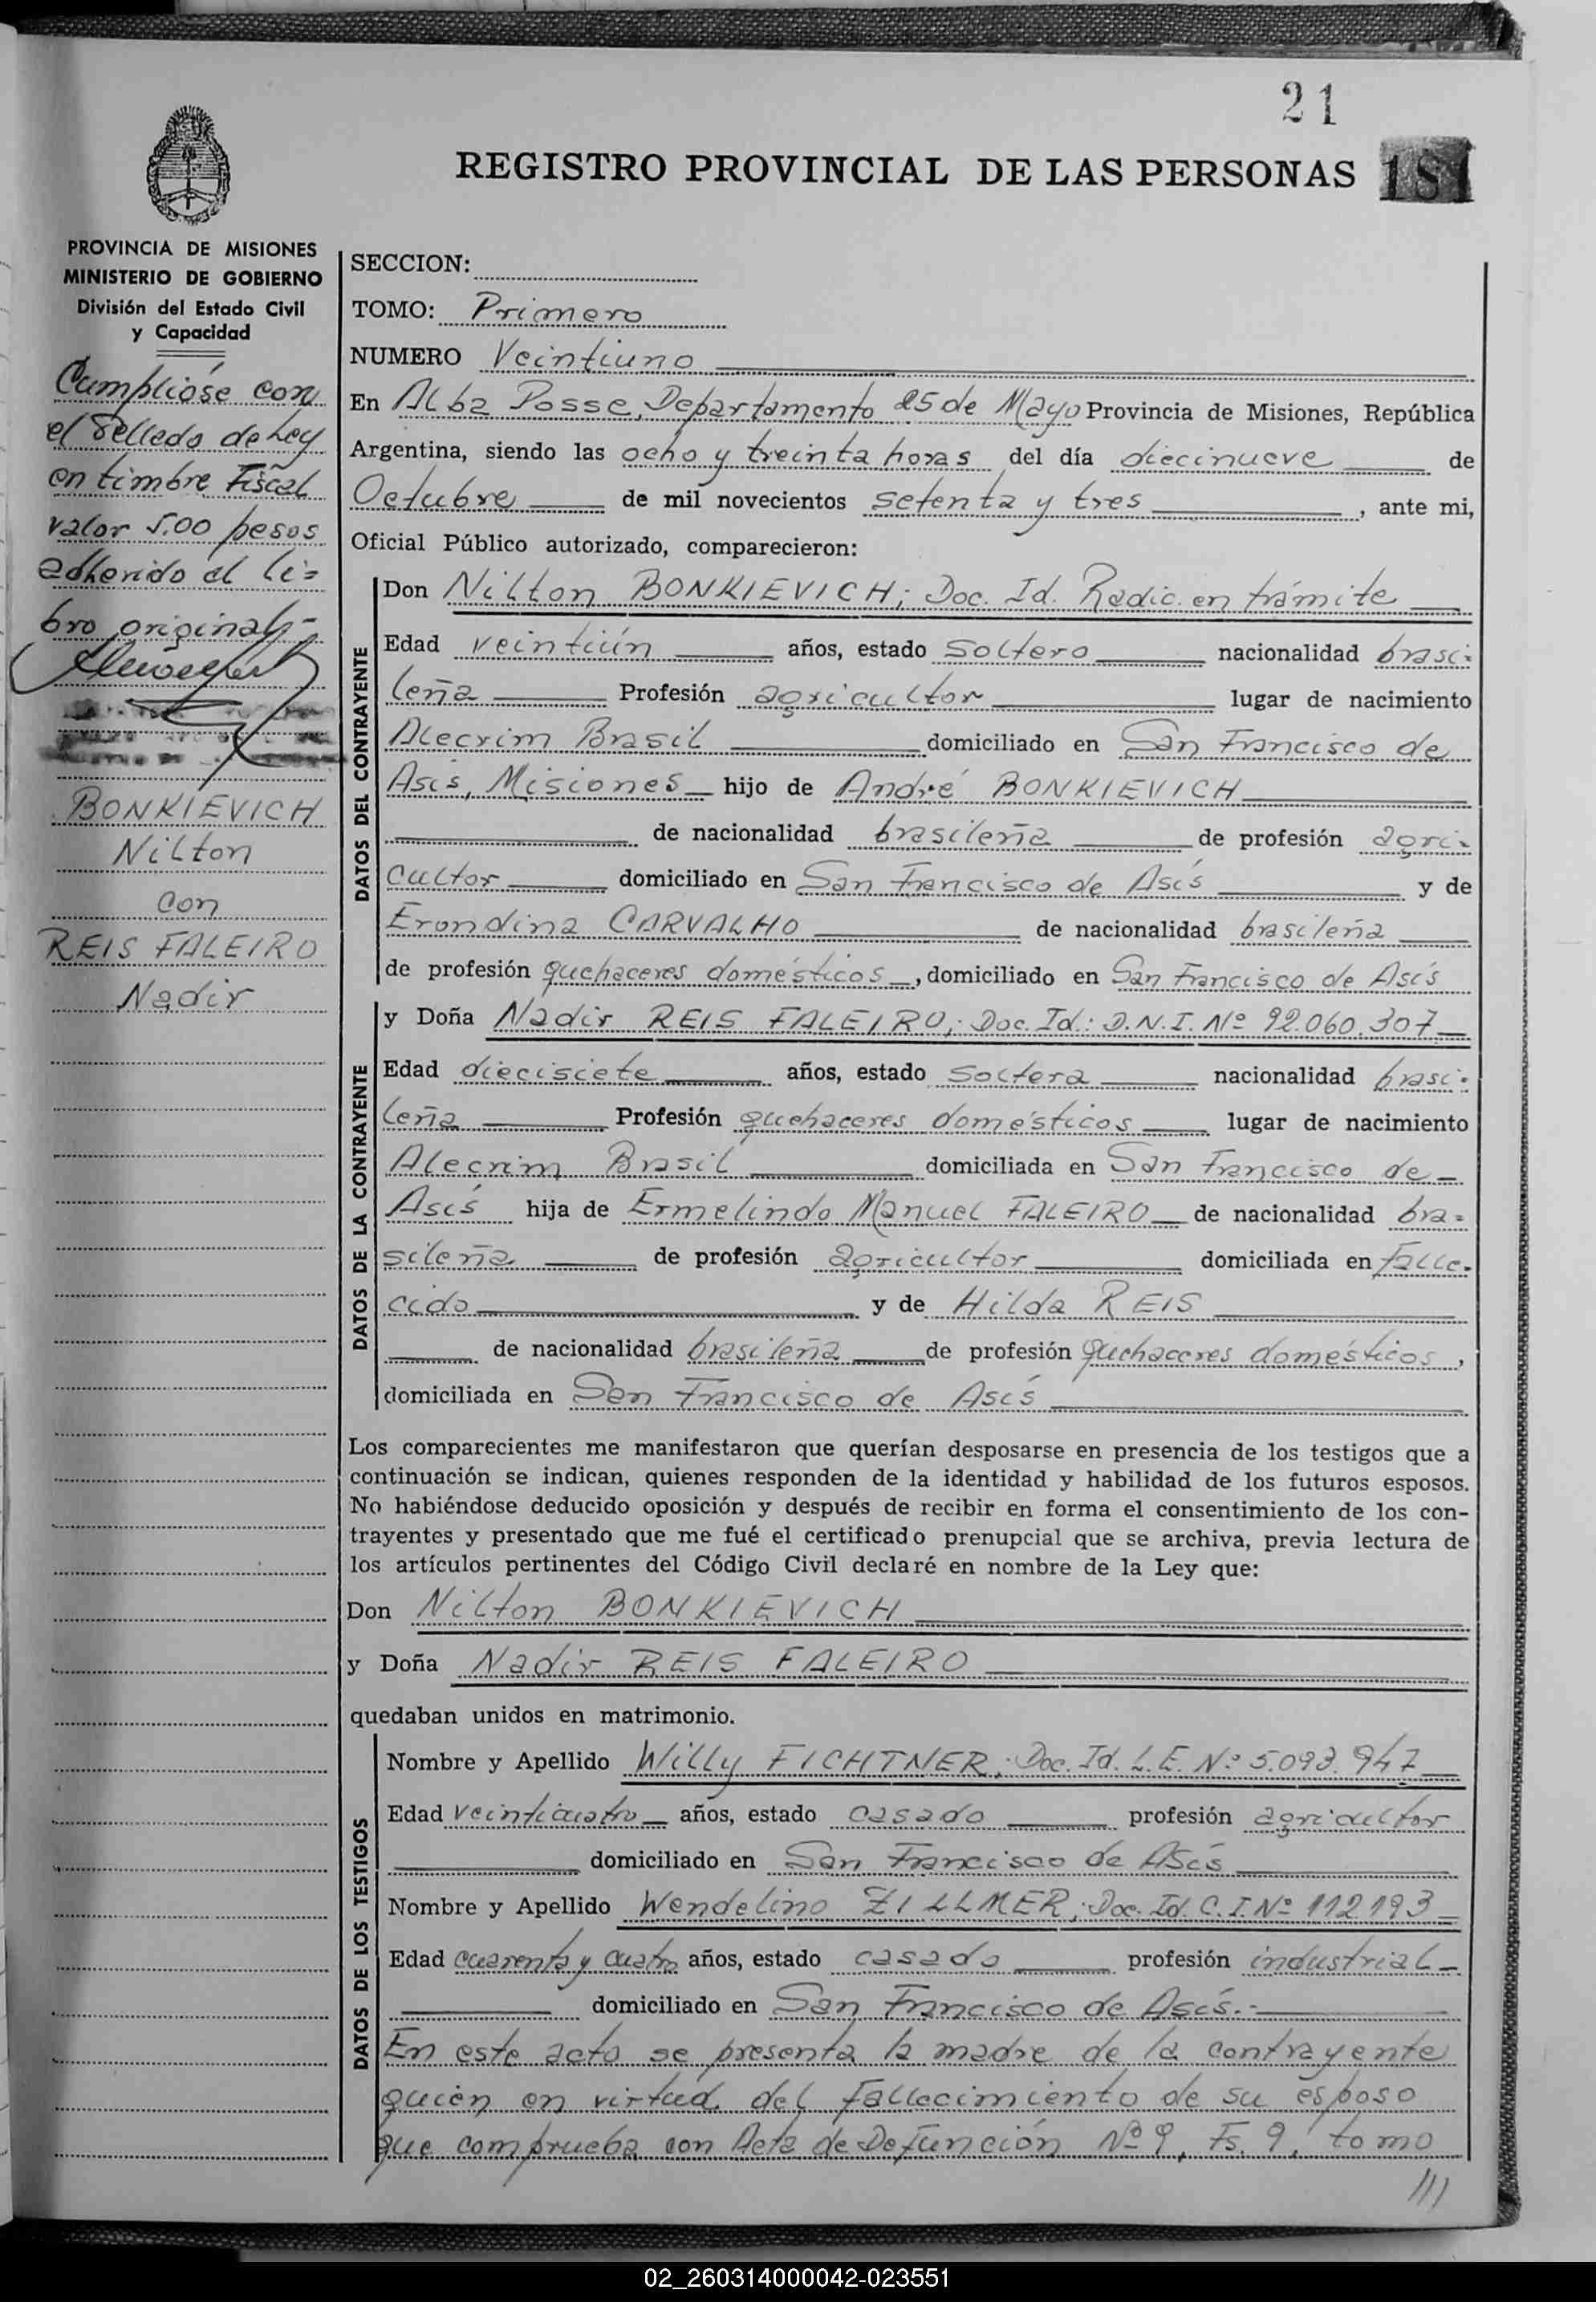 21
REGISTRO PROVINCIAL DE LAS PERSONAS 181
PROVINCIA DE MISIONES
MINISTERIO DE GOBIERNO
División del Estado Civil
y Capacidad
Cumplióse con
el Sellado de Ley
en timbre Fiscal
valor 5.00 pesos
adherido al li=
bro original.-
BONKIEVICH
Nilton
con
REIS FALEIRO
Nadir
SECCION:
TOMO: Primero
NUMERO Veintiuno
En Alba Posse, Departamento 25 de Mayo Provincia de Misiones, República
Argentina, siendo las ocho y treinta horas del día diecinueve de
Octubre de mil novecientos setenta y tres , ante mi,
Oficial Público autorizado, comparecieron:
DATOS DEL CONTRAYENTE
Don Nilton BONKIEVICH; Doc. Id. Radic. en trámite
Edad veintiún años, estado soltero nacionalidad brasi-
leña Profesión agricultor lugar de nacimiento
Alecrim Brasil domiciliado en San Francisco de
Asis, Misiones hijo de André BONKIEVICH
de nacionalidad brasileña de profesión agri-
cultor domiciliado en San Francisco de Asís y de
Erondina CARVALHO de nacionalidad brasileña
de profesión quehaceres domésticos , domiciliado en San Francisco de Asís
DATOS DE LA CONTRAYENTE
y Doña Nadir REIS FALEIRO; Doc. Id: D.N.I. Nº 92.060.307
Edad diecisiete años, estado soltera nacionalidad brasi-
leña Profesión quehaceres domésticos lugar de nacimiento
Alecrim Brasil domiciliada en San Francisco de
Asís hija de Ermelindo Manuel FALEIRO de nacionalidad bra-
sileña de profesión agricultor domiciliada en falle-
cido y de Hilda REIS
de nacionalidad brasileña de profesión quehaceres domésticos ,
domiciliada en San Francisco de Asís
Los comparecientes me manifestaron que querían desposarse en presencia de los testigos que a
continuación se indican, quienes responden de la identidad y habilidad de los futuros esposos.
No habiéndose deducido oposición y después de recibir en forma el consentimiento de los con-
trayentes y presentado que me fué el certificado prenupcial que se archiva, previa lectura de
los artículos pertinentes del Código Civil declaré en nombre de la Ley que:
Don Nilton BONKIEVICH
y Doña Nadir REIS FALEIRO
quedaban unidos en matrimonio.
DATOS DE LOS TESTIGOS
Nombre y Apellido Willy FICHTNER; Doc. Id. L.E. Nº 5.093.947
Edad veinticuatro años, estado casado profesión agricultor
domiciliado en San Francisco de Asís
Nombre y Apellido Wendelino ZILLMER; Doc. Id. C.I. Nº 112.193
Edad cuarenta y cuatro años, estado casado profesión industrial
domiciliado en San Francisco de Asís.-
En este acto se presenta la madre de la contrayente
quién en virtud del fallecimiento de su esposo
que comprueba con Acta de Defunción Nº 9, Fs. 9, tomo
///
02_260314000042-023551